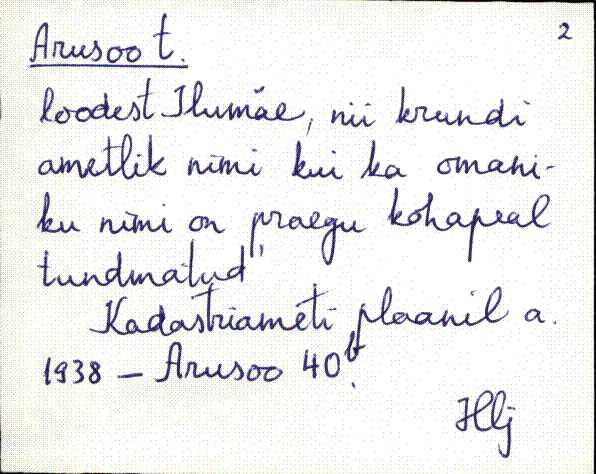 2
Arusoo t.
loodest Ilumäe, nii krundi
ametlik nimi kui ka omani-
ku nimi on praegu kohapeal
tundmatud"
Kadastriameti plaanil a.
1938 – Arusoo 40b.
Hlj